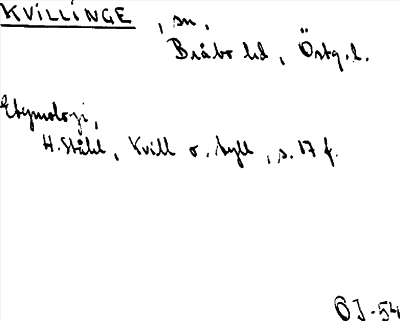 KVILLINGE, sn,
Bråbo hd, Östg.l.
Etymologi,
H. Ståhl, Kvill o. tyll, s. 17 f.
OJ-54